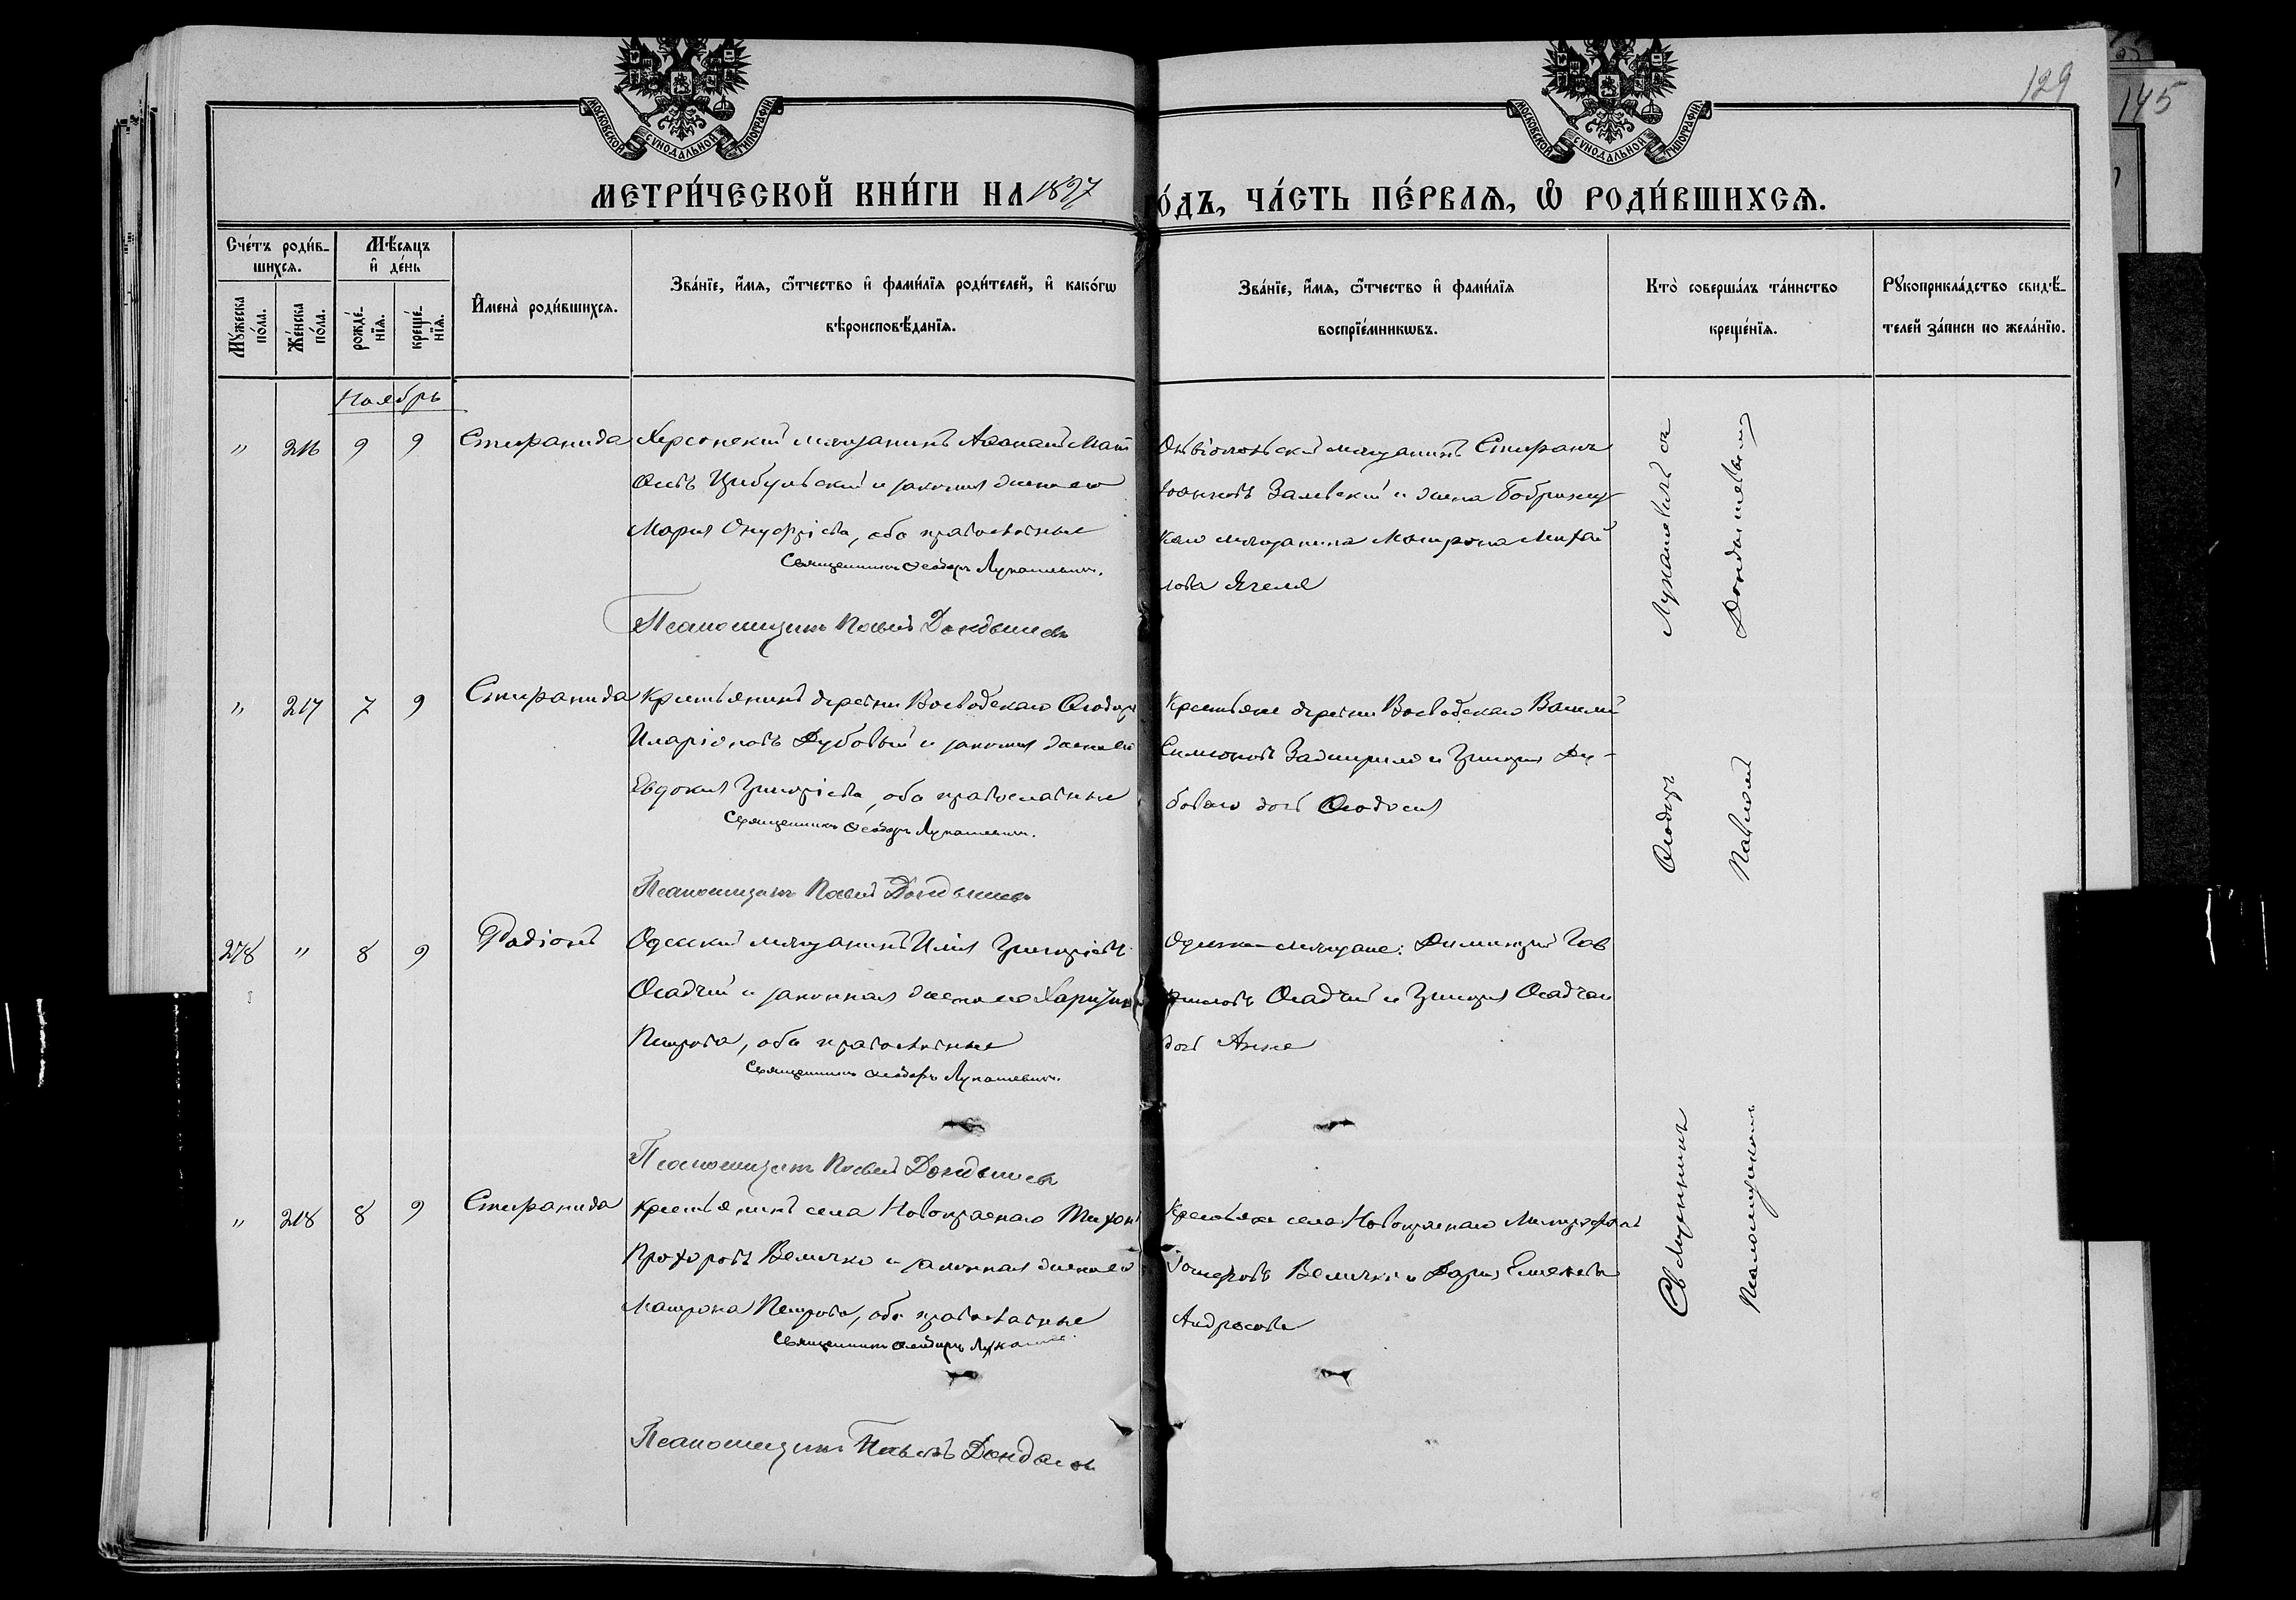 129
145
МОСКОВСКОЙ СѴНОДАЛЬНОЙ ТИПОГРАФІИ
МОСКОВСКОЙ СѴНОДАЛЬНОЙ ТИПОГРАФІИ
МЕТРИ́ЧЕСКОЙ КНИ́ГИ НА 1897 О́ДЪ, ЧА́СТЬ ПЕ́РВАѦ, Ѽ РОДИ́ВШИХСѦ.
Сче́тъ роди́в-
шихсѧ.
Мꙋ́жеска по́ла.
Же́нска по́ла.
Мѣ́сѧцъ
и҆ де́нь
рожде́-
нїѧ.
креще́-
нїѧ.
И҆мена̀ роди́вшихсѧ.
Зва́нїе, и҆́мѧ, ѻ҆́тчество и҆ фами́лїѧ роди́телей, и҆ како́гѡ
вѣроисповѣ́данїѧ.
Зва́нїе, и҆́мѧ, ѻ҆́тчество и҆ фами́лїѧ
воспрїе́мникѡвъ.
Кто̀ соверша́лъ та́инство
креще́нїѧ.
Рꙋкоприкла́дство свидѣ́-
телей за́писи по жела́нїю.
Ноябрь
" 216 9 9 Стефанида Херсонскій мѣщанинъ
Цибульскій и законная жена его
Марія Онуфріева, оба православные
Священникъ Ѳеодоръ Лукашевичъ.
Псаломщикъ Павелъ
мѣщанинъ Стефанъ
Залевскій и жена Бобринец-
каго мѣщанина Матрона Михай
лова
" 217 7 9 Стефанида Крестьянинъ деревни Воеводскаго Ѳеодоръ
Иларіоновъ Дубовый и законная жена его
Евдокія Григоріева, оба православные
Священникъ Ѳеодоръ Лукашевичъ.
Псаломщикъ Павелъ
Крестьяне деревни Воеводскаго Василій
Симеоновъ и Григорія Ду-
боваго дочь Ѳеодосія
278 " 8 9 Родіонъ Одесскій мѣщанинъ Илія Григоріевъ
Осадчій и законная жена его
Петрова, оба православные
Священникъ Ѳеодоръ Лукашевичъ.
Псаломщикъ Павелъ
Одесскіе мѣщане: Димитрій Гав
риловъ Осадчій и Григорія Осадчаго
дочь Анна
" 218 8 9 Стефанида Крестьянинъ села Новокраснаго Тихонъ
Прохоровъ Величко и законная жена его
Матрона Петрова, оба православные
Священникъ Ѳеодоръ
Псаломщикъ Павелъ
Крестьяне села Новокраснаго Митрофанъ
Величко и Дарія
Андреева
Священникъ Ѳеодоръ Лукашевичъ съ
Псаломщикомъ Павломъ